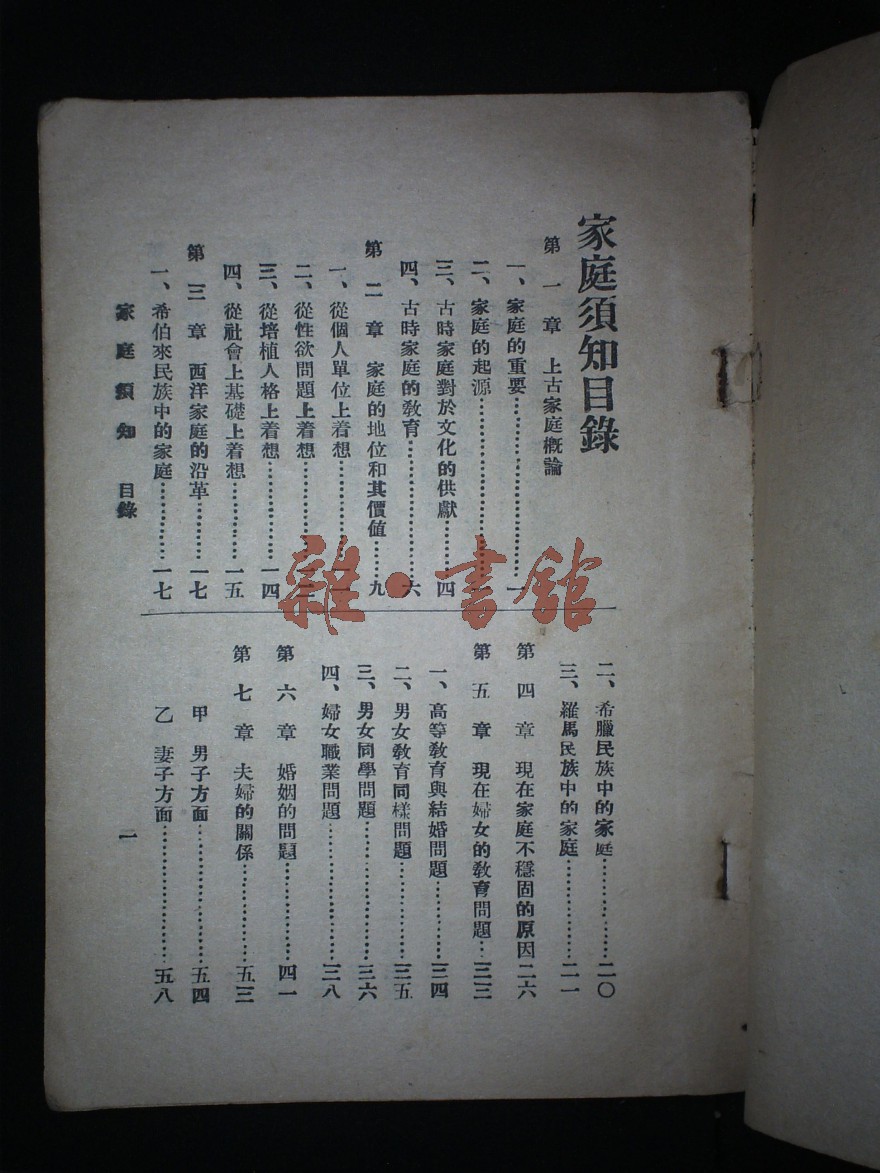 家庭須知目錄
第一章 上古家庭概論
一、家庭的重要……一
二、家庭的起源……
三、古時家庭對於文化的供獻……四
四、古時家庭的敎育……六
第二章 家庭的地位和其價值……九
一、從個人單位上着想……
二、從性欲問題上着想……
三、從培植人格上着想……一四
四、從社會上基礎上着想……一五
第三章 西洋家庭的沿革……一七
一、希伯來民族中的家庭……一七
二、希臘民族中的家庭……二〇
三、羅馬民族中的家庭……二一
第四章 現在家庭不穩固的原因二六
第五章 現在婦女的敎育問題…三三
一、高等敎育與結婚問題……三四
二、男女敎育同樣問題……三五
三、男女同學問題……三六
四、婦女職業問題……三八
第六章 婚姻的問題……四一
第七章 夫婦的關係……五三
甲 男子方面……五四
乙 妻子方面……五八
家庭須知 目錄
一
雜·書館